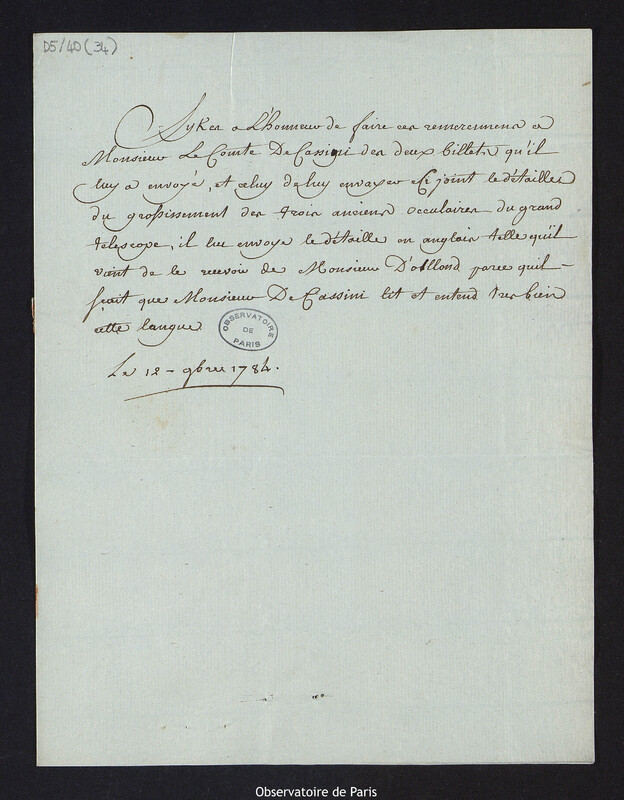 D5/40 (34)
Sykes a L'honneur de faire ces remercimens a
Monsieur Le Comte De Cassini des deux billets qu'il
luy a envoyé, et celuy de luy envoyer Ci joint le détailles
du grossissement des trois anciens occulaires du grand
telescope, il lui envoye le détaille en anglois telle qu'il
vient de le recevoir de Monsieur D'ollond parce quil
scait que Monsieur De Cassini lit et entend tres bien
cette langue
OBSERVATOIRE DE PARIS
Le 12 - 9bre 1784.
Observatoire de Paris